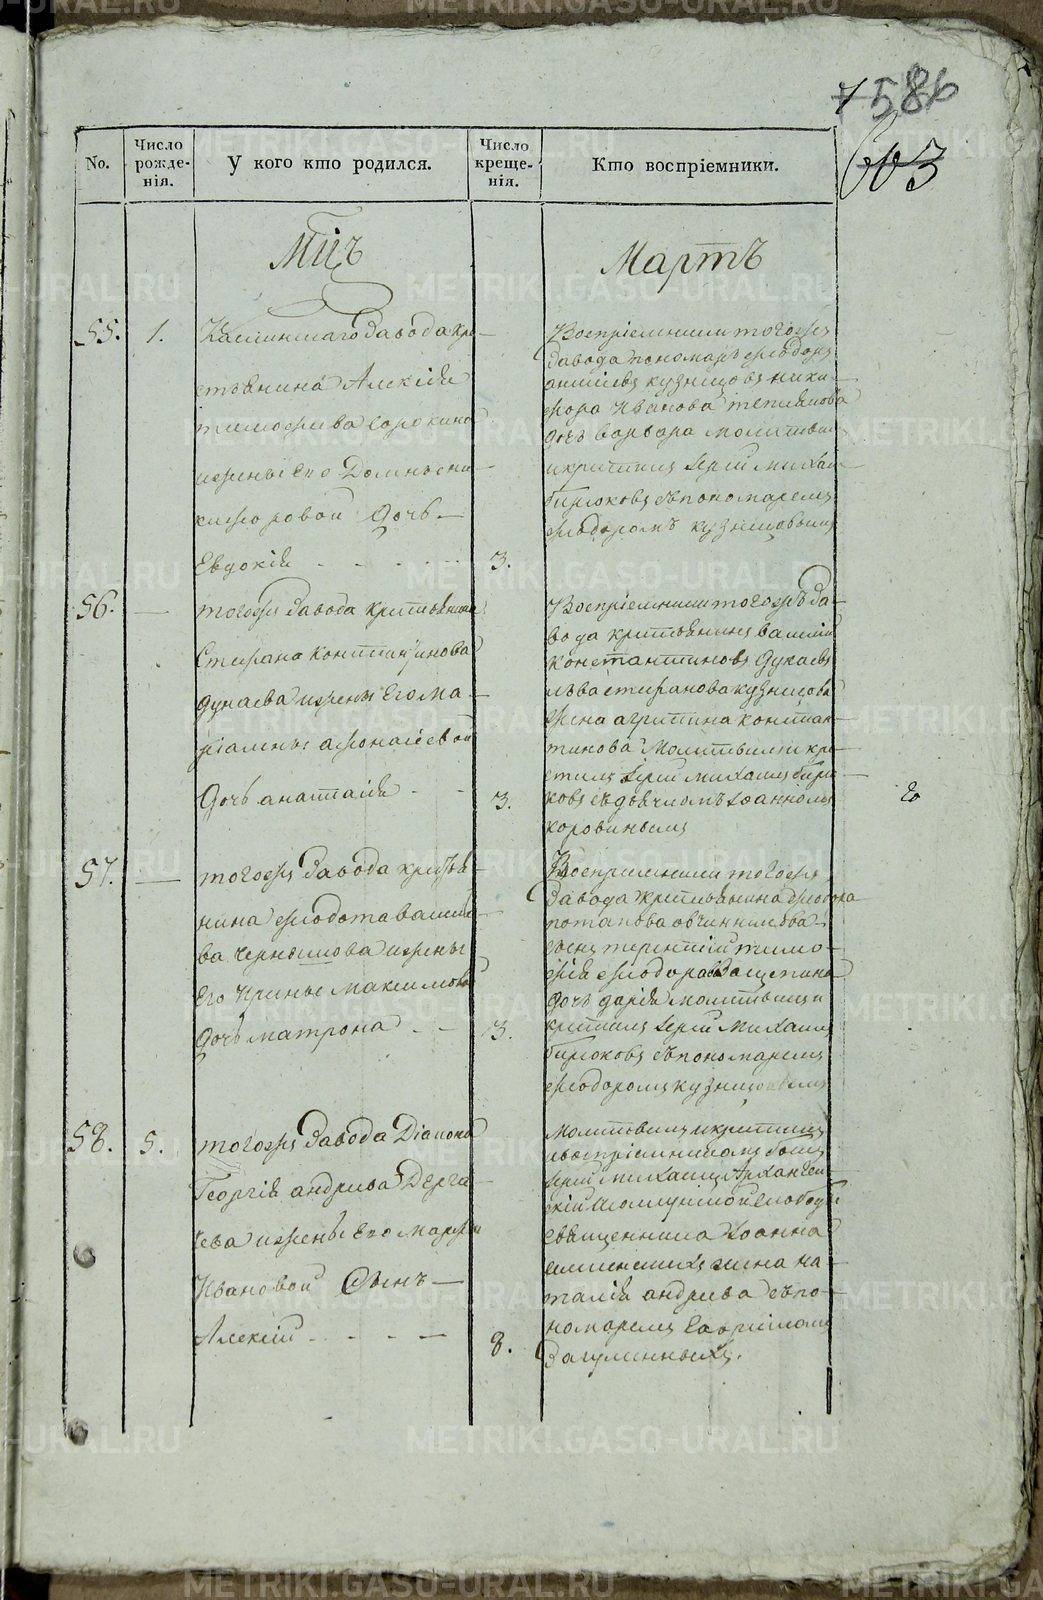 586
603
No.
Число рожде-нія.
У кого кто родился.
Число креще-нія.
Кто воспріемники.
Мцъ
Мартъ
55. 1.
Каслинскаго завода кре-
стьянина Алексія
тимофиева сорокина
ижены его Домны ни-
кифоровой дочь
Евдокія 3.
Воспріемники тогожъ
завода пономарь феодоръ
кузнецовъ ники-
фора Иванова
дочь варвара молитвилъ
икрестилъ Іерей михаи
бирюковъ съпономаремъ
феодоромъ кузнецовымъ
56. —
тогожъ завода крестьянина
Стефана константинова
дунаева ижены Его Ма-
афонасіевой
Дочь анастасія 3.
Воспріемники тогожъ за-
вода крестьянинъ василій
константиновъ дунаевъ
льва стефанова кузнецова
жена агрипина констан-
тинова Молитвилъ и кре-
стилъ Іерей михаилъ бирю-
ковъ съдьячкомъ Іоанномъ
коровинымъ
57. —
тогожъ завода крестья-
нина феодота василье-
ва чернышова ижены
Его Ирины Максимовой
дочь матрона 3.
Воспріемники тогожъ
завода крестьянина феодора
потапова овчинникова
сынъ терентій тимо-
фея феодорова
дочь дарія молитвилъ и
крестилъ Іерей Михаилъ
бирюковъ съпономаремъ
феодоромъ кузнецовымъ
58. 5.
тогожъ завода Діакона
Георгія андреева Дерга-
чева ижены Его марфы
Ивановой Сынъ
Алексій 8.
молитвилъ икрестилъ
ивоспріемникомъ былъ
Іерей михаилъ Архангел-
скій слободы
священника Іоанна
жена на-
талія андреева съпо-
номаремъ Гавріиломъ
METRIKI.GASO-URAL.RU